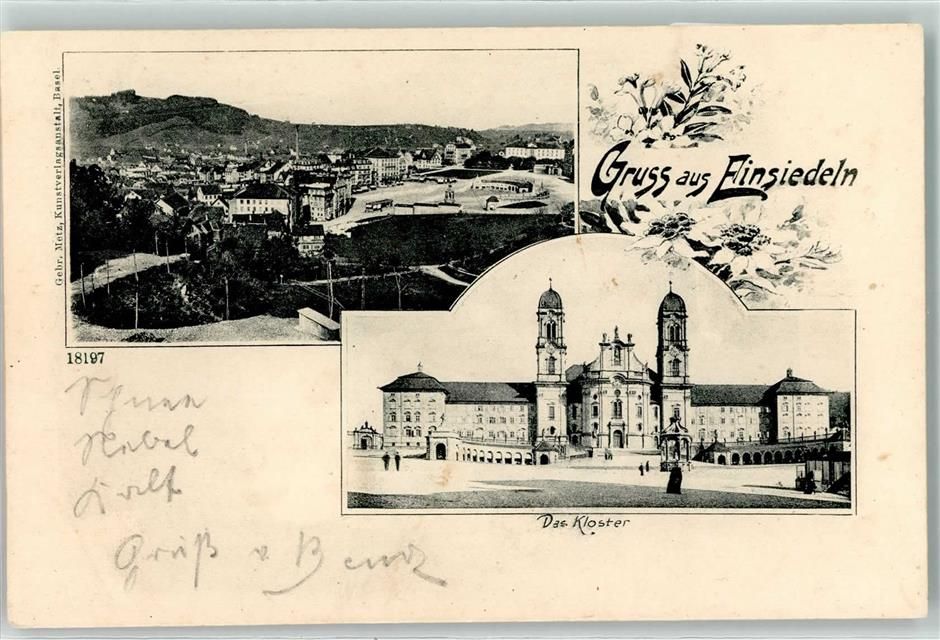 Gebr. Metz, Kunstverlagsanstalt, Basel.
Gruss aus Einsiedeln
18197
Das Kloster
Nebel
Kalt
Gruß v